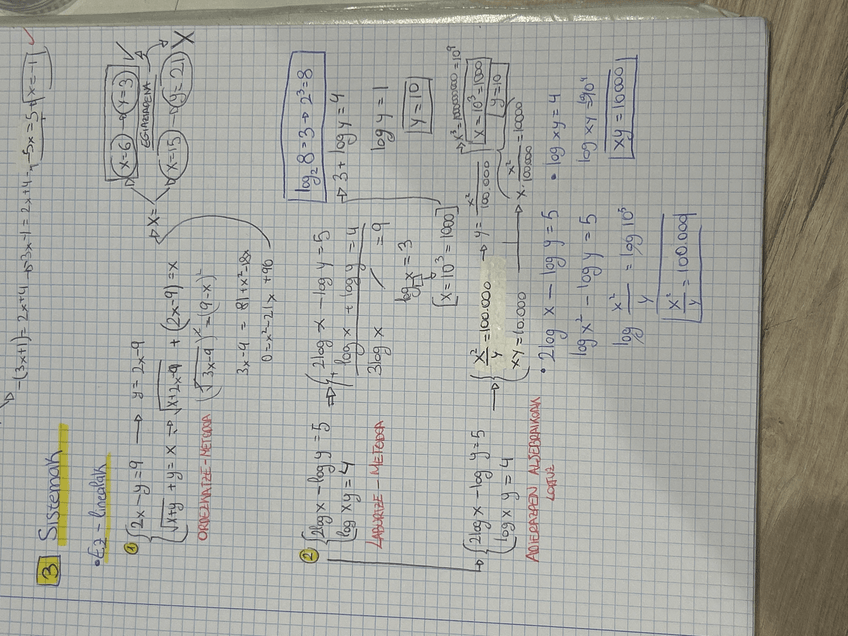 -(3x+1)=2x+4 → -3x-1=2x+4 → -5x=5 → x=-1 ✓
3 Sistemak
• Ez-linealak
1) { 2x-y=9 → y=2x-9
{ √x+y + y = x → √x+2x-9 + (2x-9) = x
ORDEZKATZE-METODOA
(√3x-9)² = (9-x)²
3x-9 = 81+x²-18x
0=x²-21x+90
→ x=
x=6 → y=3 ✓
EGIAZTAPENA
x=15 → y=21 X
2) { 2log x - log y = 5
{ log xy = 4
LABURTZE-METODOA
→ { 2log x - log y = 5
+ { log x + log y = 4
3log x / = 9
log x = 3
x=10³=1000
log₂ 8 = 3 → 2³=8
→ 3 + log y = 4
log y = 1
y=10
→ { 2log x - log y = 5
{ log x y = 4
ADIERAZPEN ALJEBRAIKOAK
LOTUZ
→ { x²/y = 100.000 → y = x²/100.000
{ xy = 10.000 → x · x²/100.000 = 10000
→ x³=1000000000=10⁹
x=10³=1000
y=10
• 2log x - log y = 5
log x² - log y = 5
log x²/y = log 10⁵
x²/y = 100.000
• log xy = 4
log xy = 10⁴
xy = 10000